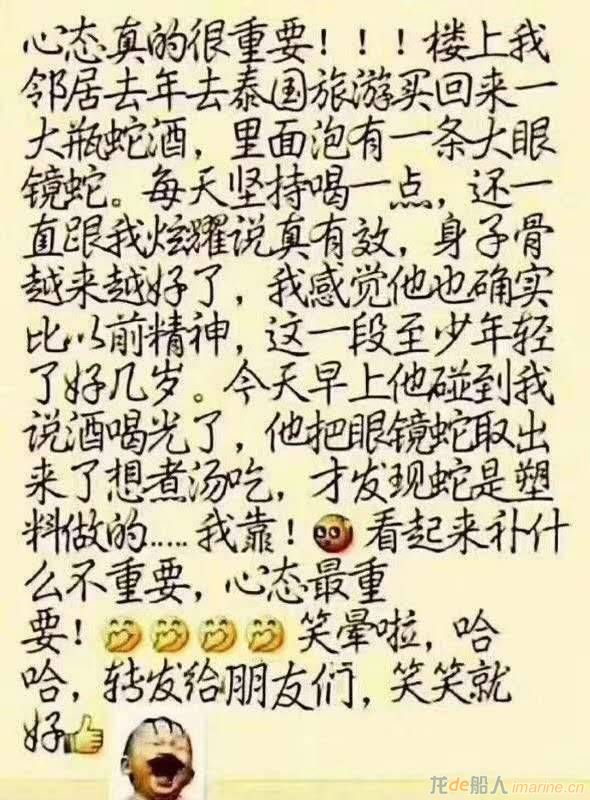 心态真的很重要！！！楼上我
邻居去年去泰国旅游买回来一
大瓶蛇酒，里面泡有一条大眼
镜蛇。每天坚持喝一点，还一
直跟我炫耀说真有效，身子骨
越来越好了，我感觉他也确实
比以前精神，这一段至少年轻
了好几岁。今天早上他碰到我
说酒喝光了，他把眼镜蛇取出
来了想煮汤吃，才发现蛇是塑
料做的.....我靠！😡看起来补什
么不重要，心态最重
要！🤭🤭🤭🤭笑晕啦，哈
哈，转发给朋友们，笑笑就
好👍
龙de船人 imarine.cn